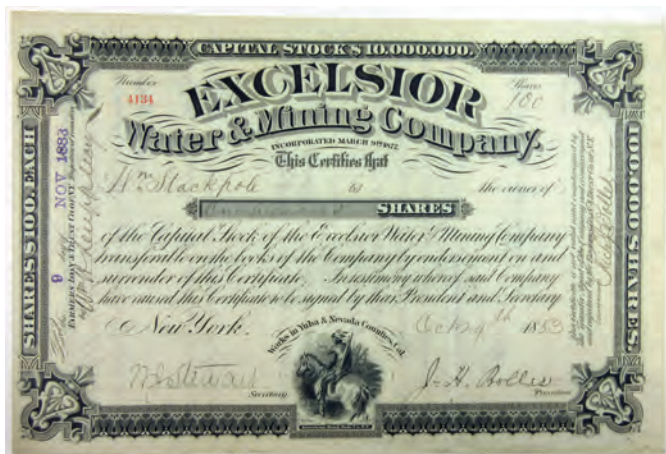 CAPITAL STOCK $10,000,000.
Number
4134
Shares
100
EXCELSIOR
Water & Mining Company.
INCORPORATED MARCH 9TH 1877.
This Certifies that
Wm Stackpole is the owner of
SHARES
of the Capital Stock of the Excelsior Water & Mining Company
transferable on the books of the Company by endorsement and
surrender of this Certificate. In testimony whereof said Company
have caused this Certificate to be signed by their President and Secretary
New York. Oct 9th 1883
Works in Yuba & Nevada Counties, Cal.
Secretary
J. H. Bolles
President
SHARES $100. EACH
9 NOV 1883
FARMERS LOAN & TRUST CO. OF N.Y.
100,000 SHARES.